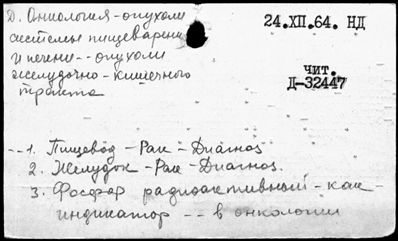 Д. Онкология - опухоли
системы пищеварени
и печени -- опухоли
желудочно - кишечного
тракта
24.XII.64. НД
чит.
Д-32447
-- 1. Пищевод - Рак - Диагноз
2. Желудок - Рак - Диагноз.
3. Фосфор радиоактивный - как -
индикатор -- в онкологии